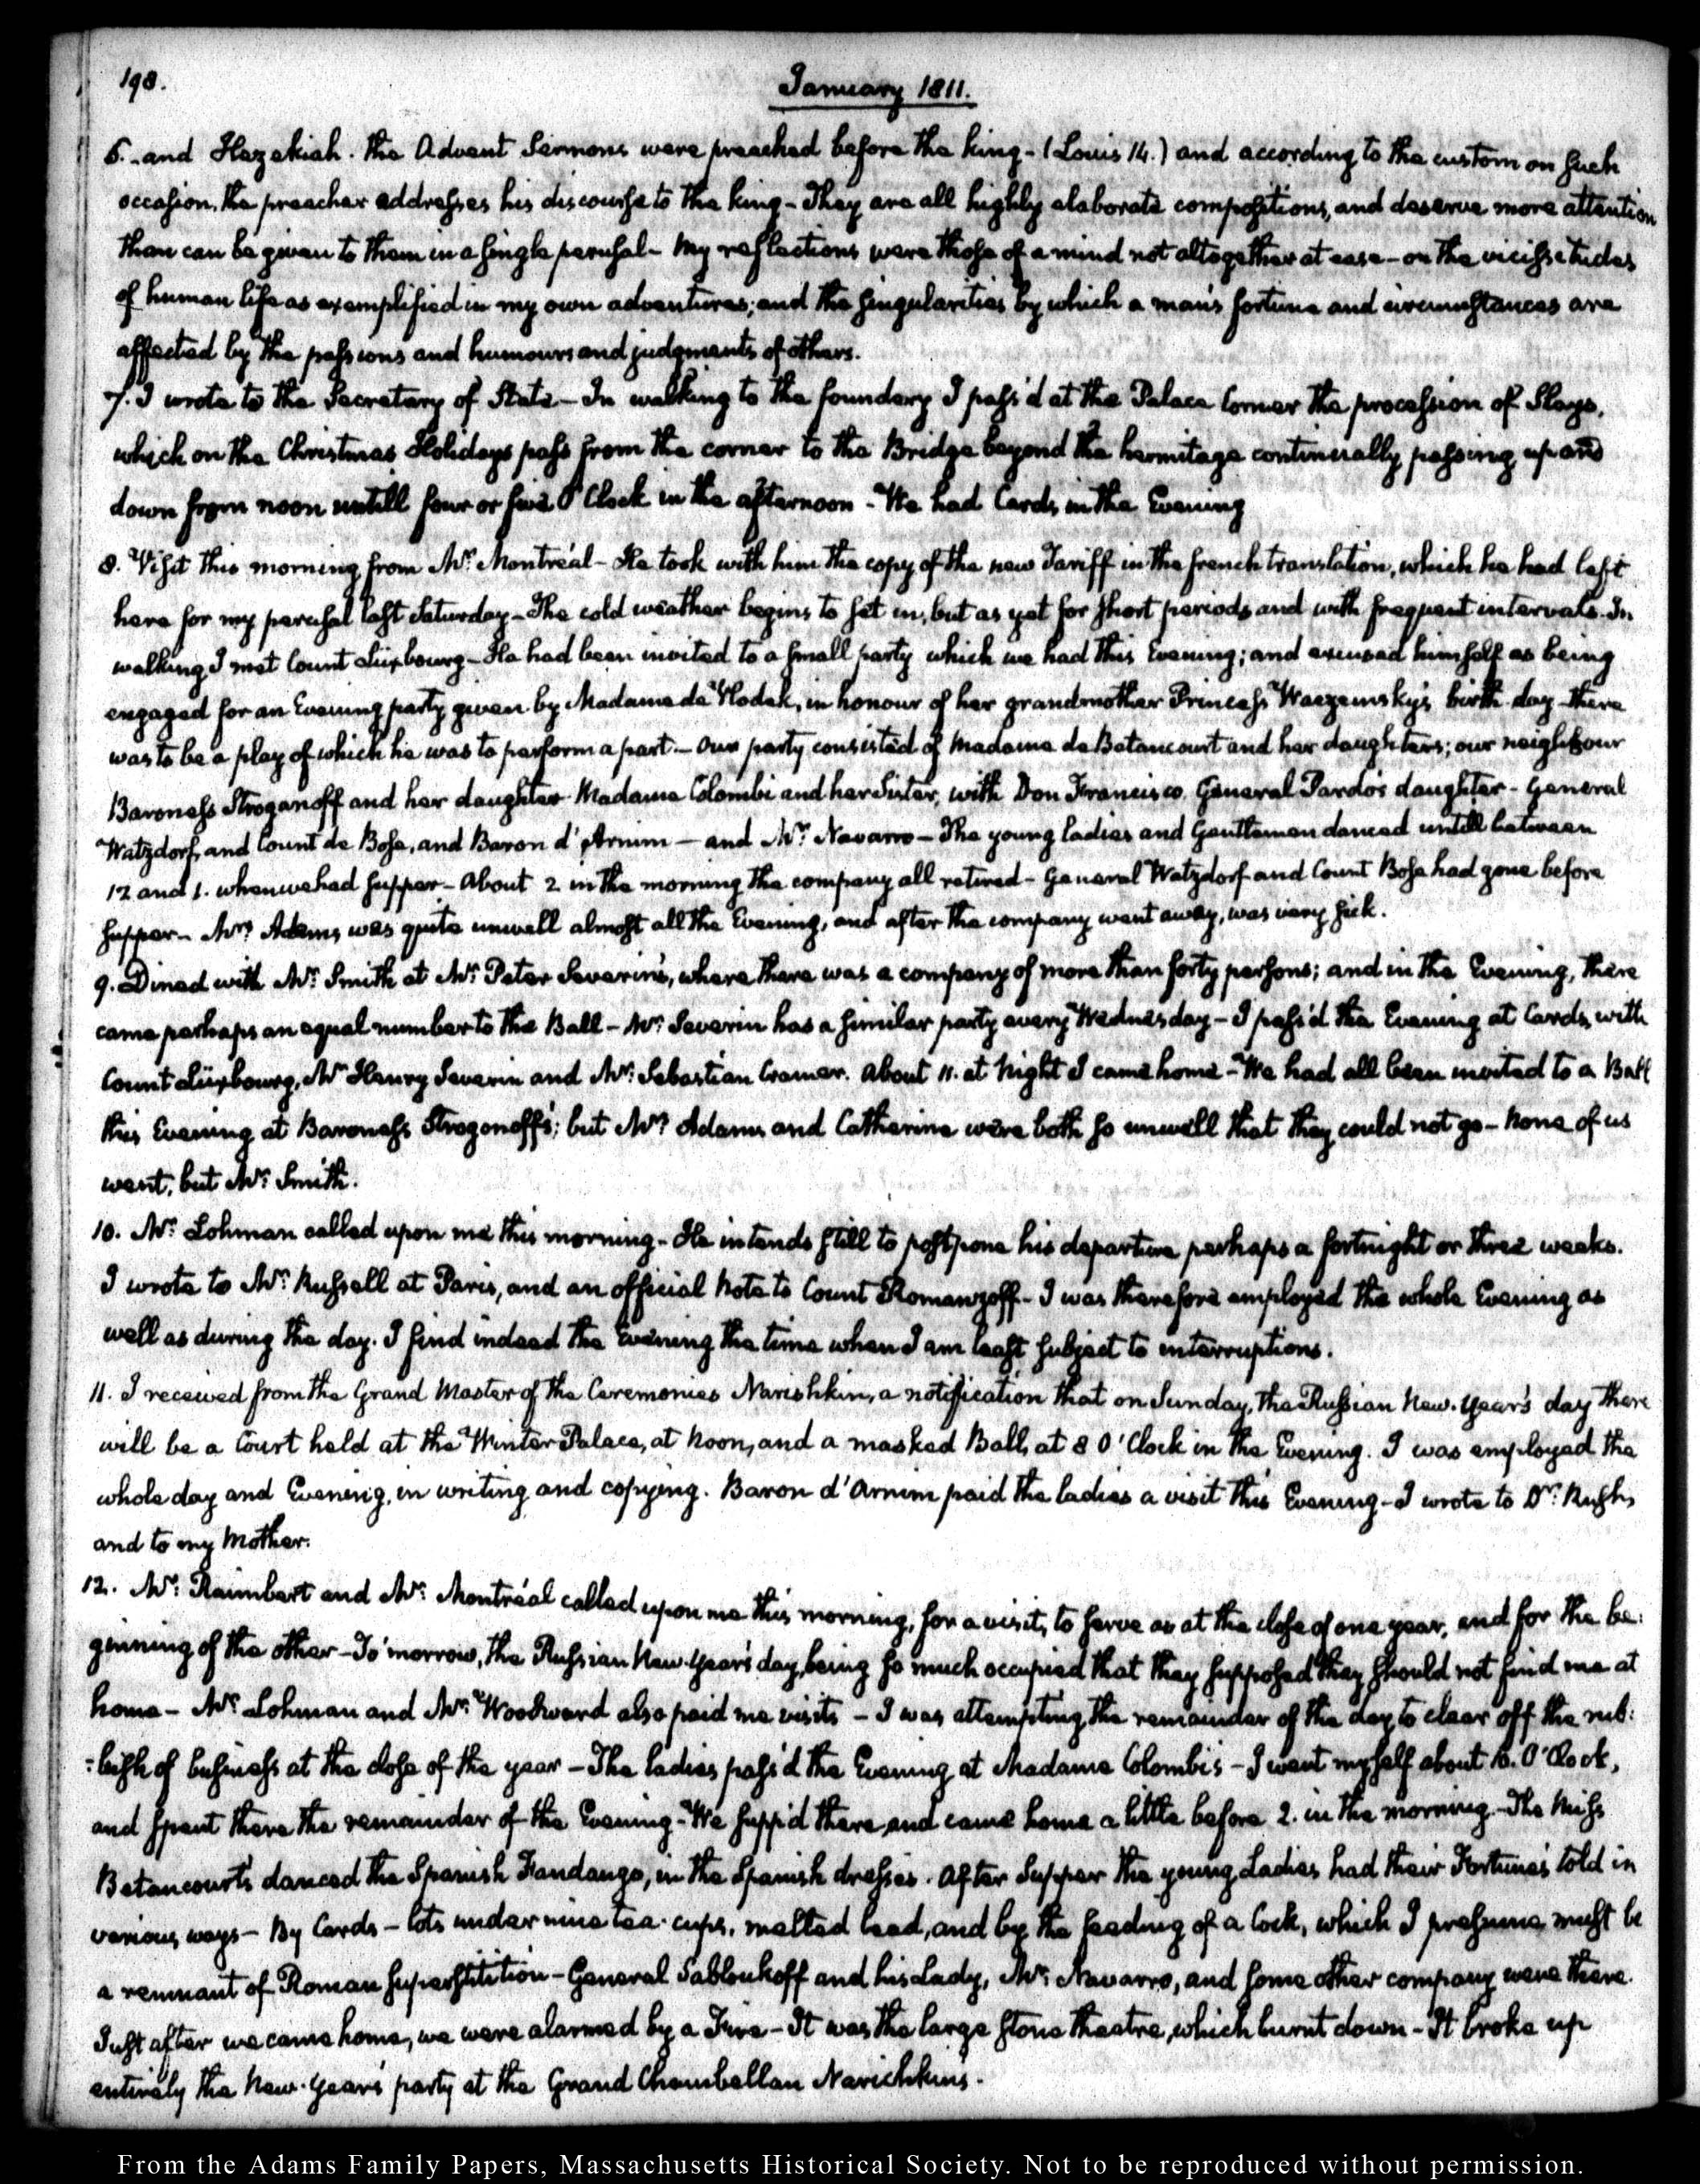 198.
January 1811.
6. and Hezekiah. The Advent Sermons were preached before the king - (Louis 14.) and according to the custom on such
occasion, the preacher addresses his discourse to the king - They are all highly elaborate compositions, and deserve more attention
than can be given to them in a single perusal - My reflections were those of a mind not altogether at ease - on the vicissitudes
of human life as exemplified in my own adventures; and the singularities by which a man's fortune and circumstances are
affected by the passions and humours and judgments of others.
7. I wrote to the Secretary of State - In walking to the foundery I pass'd at the Palace Corner the procession of Slays,
which on the Christmas Holidays pass from the corner to the Bridge beyond the hermitage continually passing up and
down from noon untill four or five O'Clock in the afternoon - We had Cards in the Evening
8. Visit this morning from Mr. Montréal - He took with him the copy of the new Tariff in the french translation, which he had left
here for my perusal last Saturday - The cold weather begins to set in, but as yet for short periods and with frequent intervals. In
walking I met Count Lüxbourg - He had been invited to a small party which we had this Evening; and excused himself as being
engaged for an Evening party given by Madame de Vlodek, in honour of her grandmother Princess Waezemsky's birth-day - there
was to be a play of which he was to perform a part - Our party consisted of Madame de Betancourt and her daughters; our neighbour
Baroness Stroganoff and her daughter Madame Colombi and her Sister, with Don Francisco General Pardo's daughter - General
Watzdorf, and Count de Bose, and Baron d'Arnim - and Mr. Navarro - The young Ladies and Gentlemen danced untill between
12 and 1. when we had supper - About 2 in the morning the company all retired - General Watzdorf and Count Bose had gone before
supper - Mrs. Adams was quite unwell almost all the Evening, and after the company went away, was very sick.
9. Dined with Mr. Smith at Mr. Peter Severin's, where there was a company of more than forty persons; and in the Evening, there
came perhaps an equal number to the Ball - Mr. Severin has a similar party every Wednesday - I pass'd the Evening at Cards, with
Count Lüxbourg, Mr. Henry Severin and Mr. Sebastian Cramer. About 11. at Night I came home - We had all been invited to a Ball
this Evening at Baroness Strogonoff's; but Mrs. Adams and Catherine were both so unwell that they could not go - None of us
went, but Mr. Smith.
10. Mr. Lohman called upon me this morning - He intends still to postpone his departure perhaps a fortnight or three weeks.
I wrote to Mr. Russell at Paris, and an official Note to Count Romanzoff - I was therefore employed the whole Evening as
well as during the day. I find indeed the Evening the time when I am least subject to interruptions.
11. I received from the Grand Master of the Ceremonies Narishkin, a notification that on Sunday, the Russian New-Year's day there
will be a Court held at the Winter Palace, at Noon, and a masked Ball, at 8 O'Clock in the Evening. I was employed the
whole day and Evening, in writing and copying. Baron d'Arnim paid the ladies a visit this Evening - I wrote to Dr. Rush,
and to my Mother.
12. Mr. Raimbert and Mr. Montréal called upon me this morning, for a visit, to serve as at the close of one year, and for the be:
ginning of the other - To-morrow, the Russian New-Year's day, being so much occupied that they supposed they should not find me at
home - Mr. Lohman and Mr. Woodward also paid me visits - I was attempting the remainder of the day to clear off the rub:
:bish of business at the close of the year - The ladies pass'd the Evening at Madame Colombi's - I went myself about 10. O'Clock,
and spent there the remainder of the Evening - We supp'd there, and came home a little before 2. in the morning - The Miss
Betancourt's danced the Spanish Fandango, in the Spanish dresses. After Supper the young Ladies had their Fortune's told in
various ways - By Cards - lots under nine tea-cups, melted lead, and by the feeding of a Cock, which I presume must be
a remnant of Roman Superstition - General Sabloukoff and his Lady, Mr. Navarro, and some other company were there.
Just after we came home, we were alarmed by a Fire - It was the large stone theatre, which burnt down - It broke up
entirely the New-Year's party at the Grand Chambellan Narichkin's.
From the Adams Family Papers, Massachusetts Historical Society. Not to be reproduced without permission.